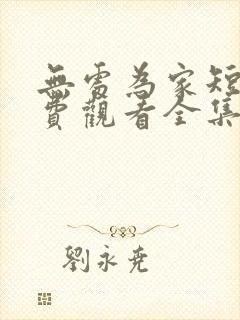 無處為家短
費觀看全集
劉永堯